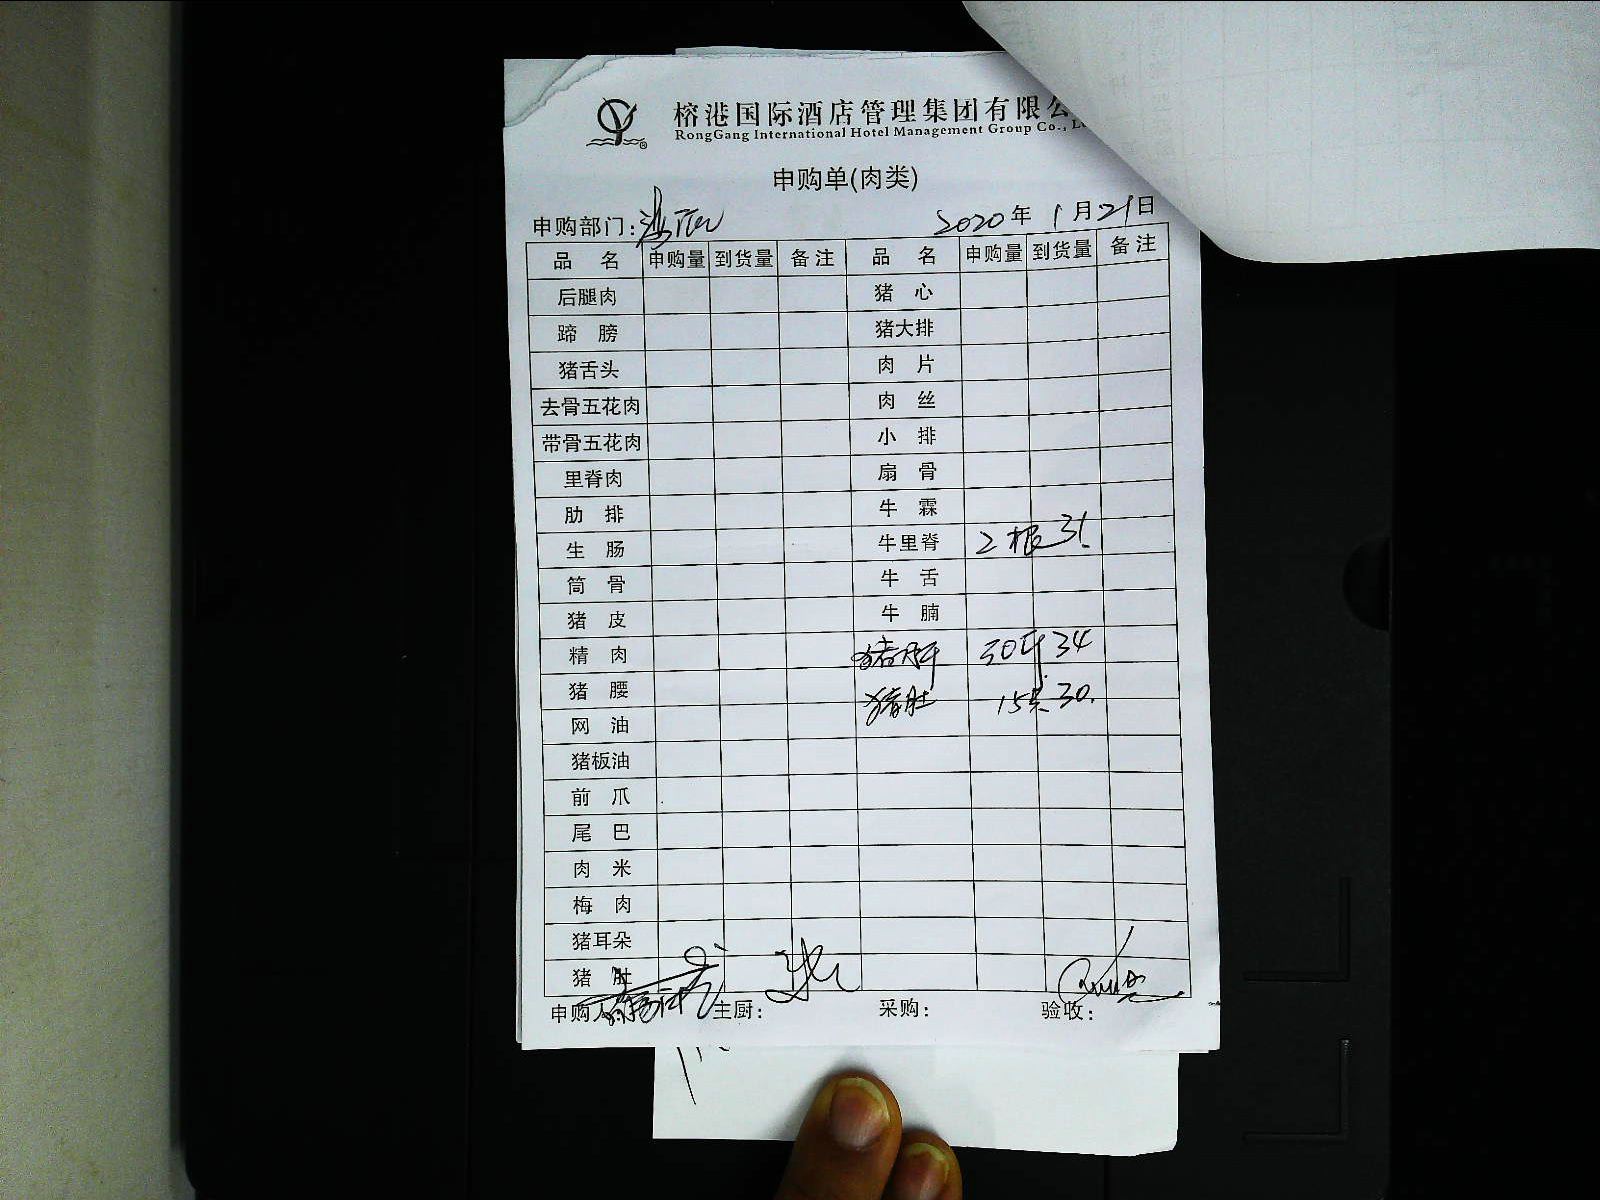 榕港国际酒店管理集团有限公
RongGang International Hotel Management Group Co., L
申购单(肉类)
申购部门: 2020年 1月21日
品 名 申购量 到货量 备注 品 名 申购量 到货量 备注
后腿肉 猪 心
蹄 膀 猪大排
猪舌头 肉 片
去骨五花肉 肉 丝
带骨五花肉 小 排
里脊肉 扇 骨
肋 排 牛 霖
生 肠 牛里脊 2根 31
筒 骨 牛 舌
猪 皮 牛 腩
精 肉 猪肝 30斤 34
猪 腰 猪肚 15只 30.
网 油
猪板油
前 爪
尾 巴
肉 米
梅 肉
猪耳朵
猪 肚
申购人: 主厨: 采购: 验收: